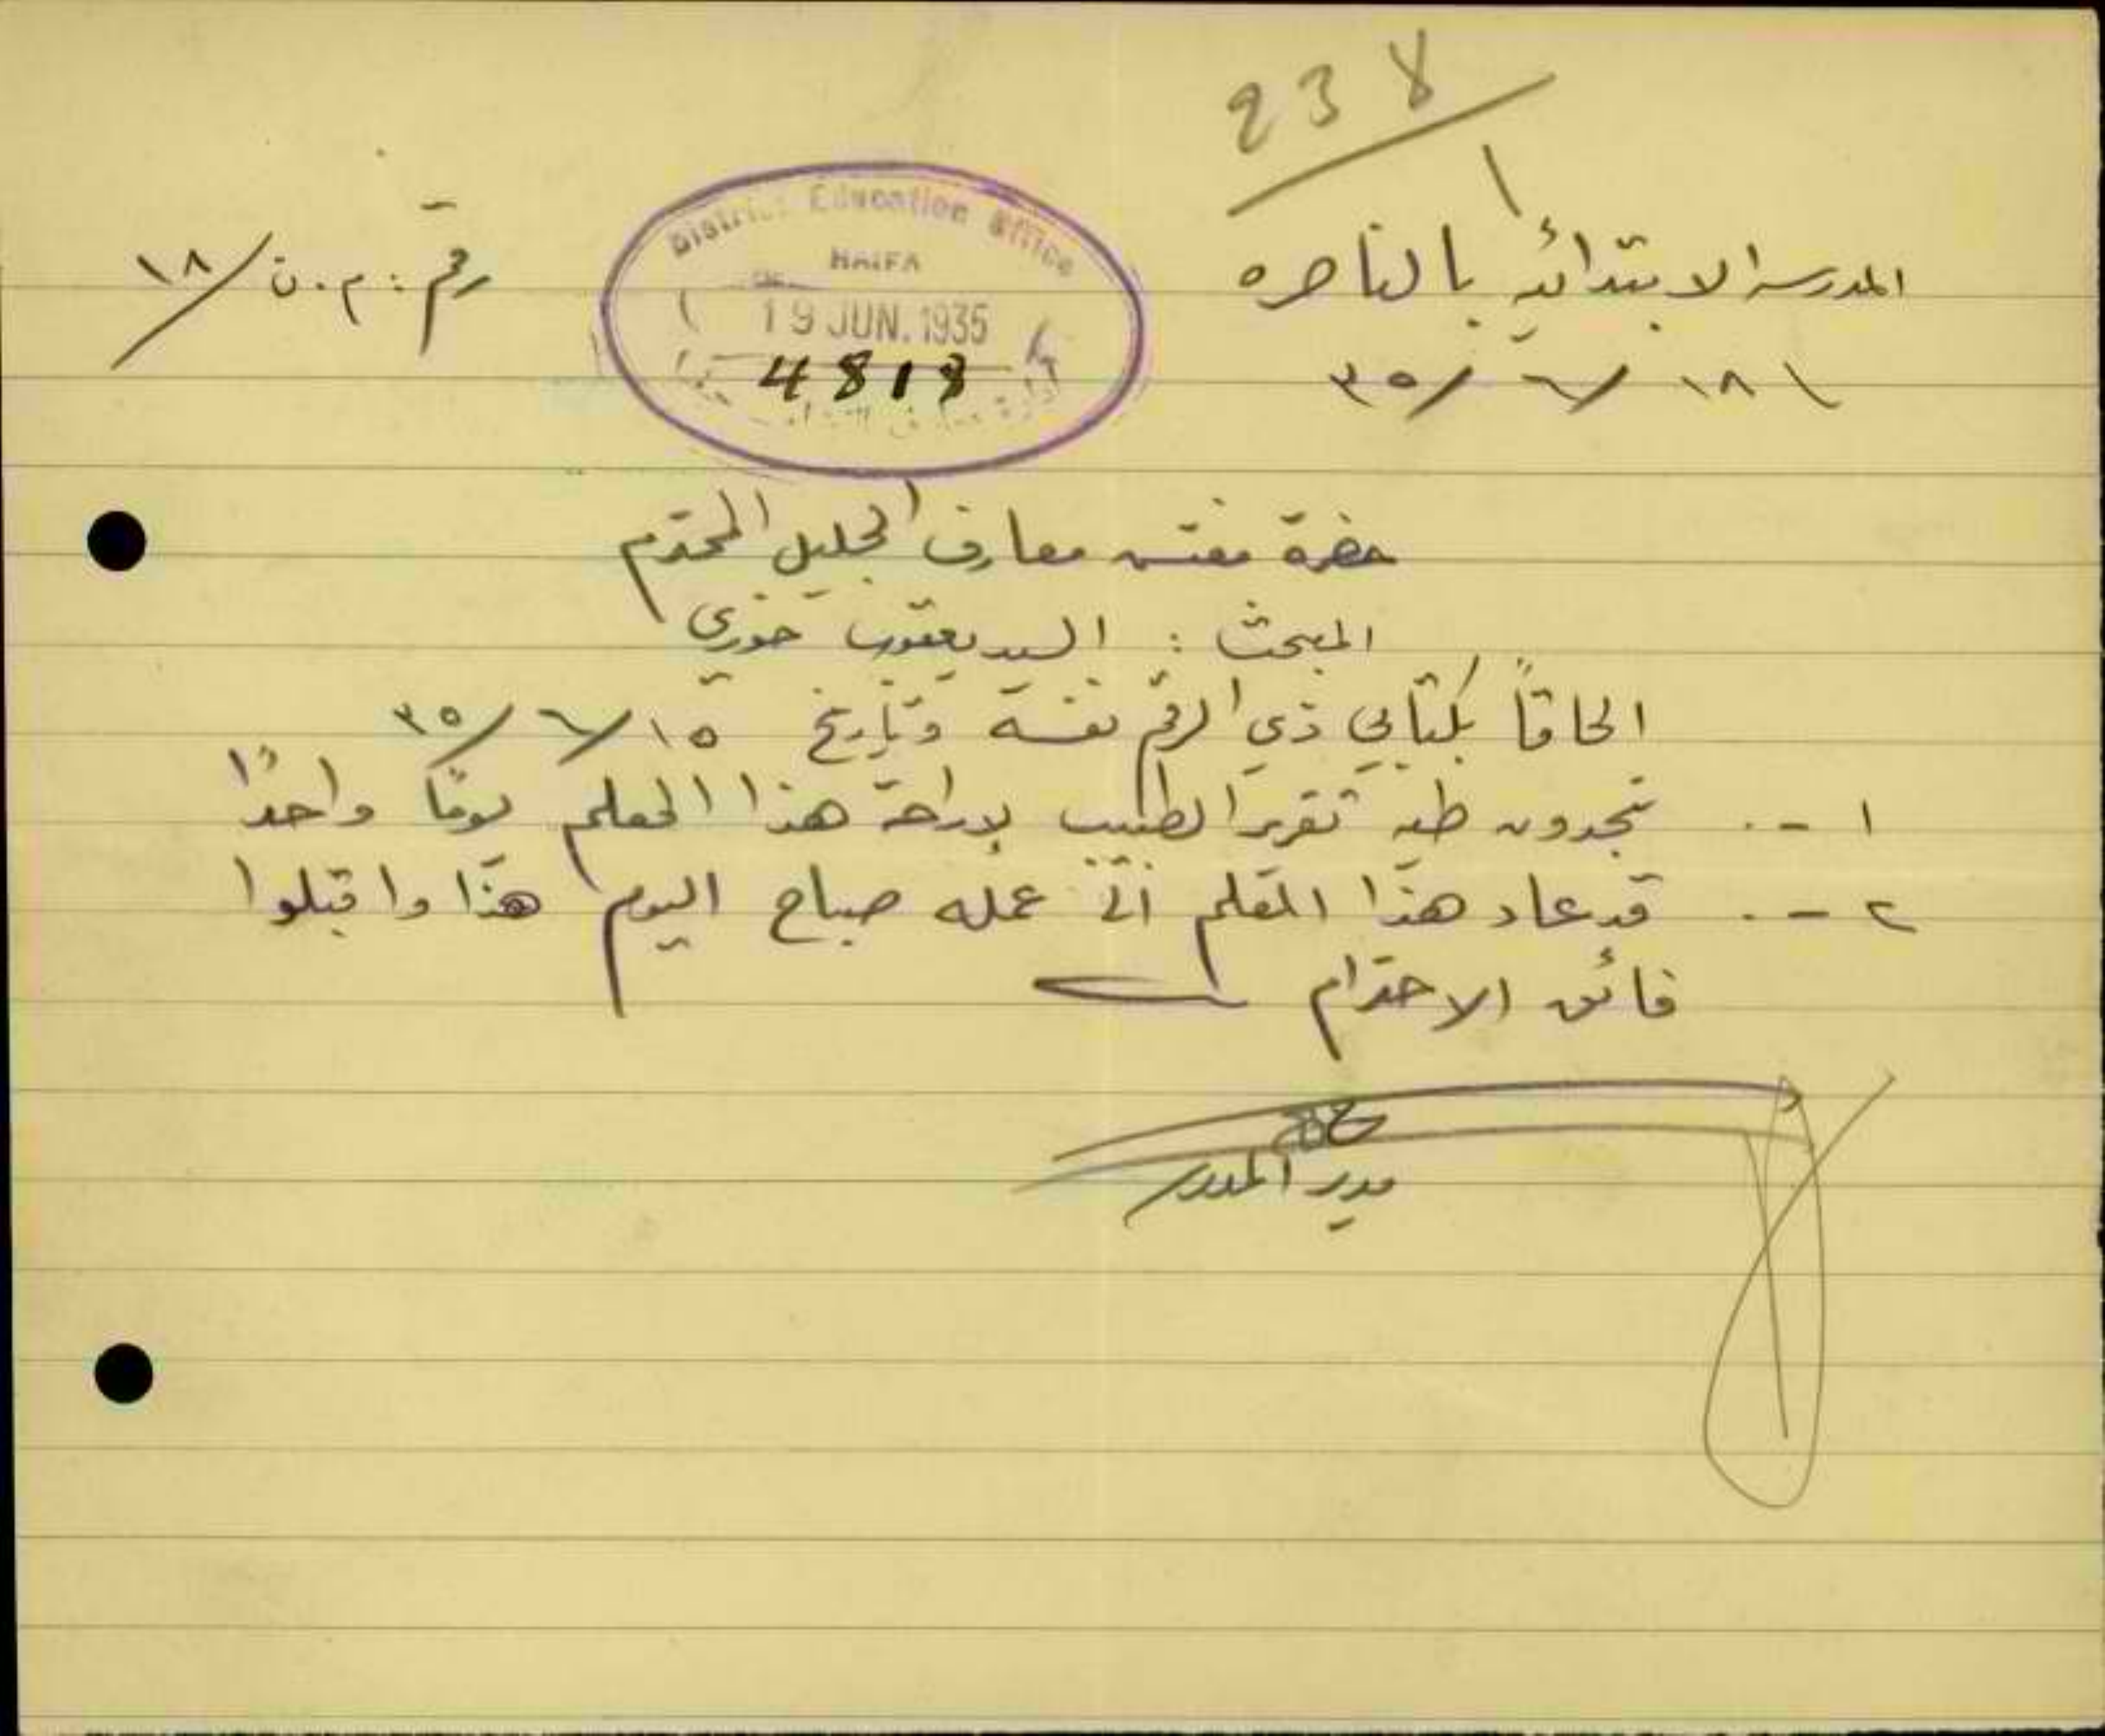 238
المدرسة الابتدائية بالناصره
رقم : م . ن / ١٨
١٨ / ٦ / ٣٥
District Education Office
HAIFA
19 JUN. 1935
4818
حضرة مفتش معارف الجليل المحترم
المبحث : السيد يعقوب خوري
الحاقاً بكتابي ذي الرقم نفسه وتاريخ ١٥ / ٦ / ٣٥
١ - . تجدون طيه تقرير الطبيب لإراحة هذا المعلم يومًا واحدًا
٢ - . قد عاد هذا المعلم الى عمله صباح اليوم هذا واقبلوا
فائق الاحترام
مدير المدرسة